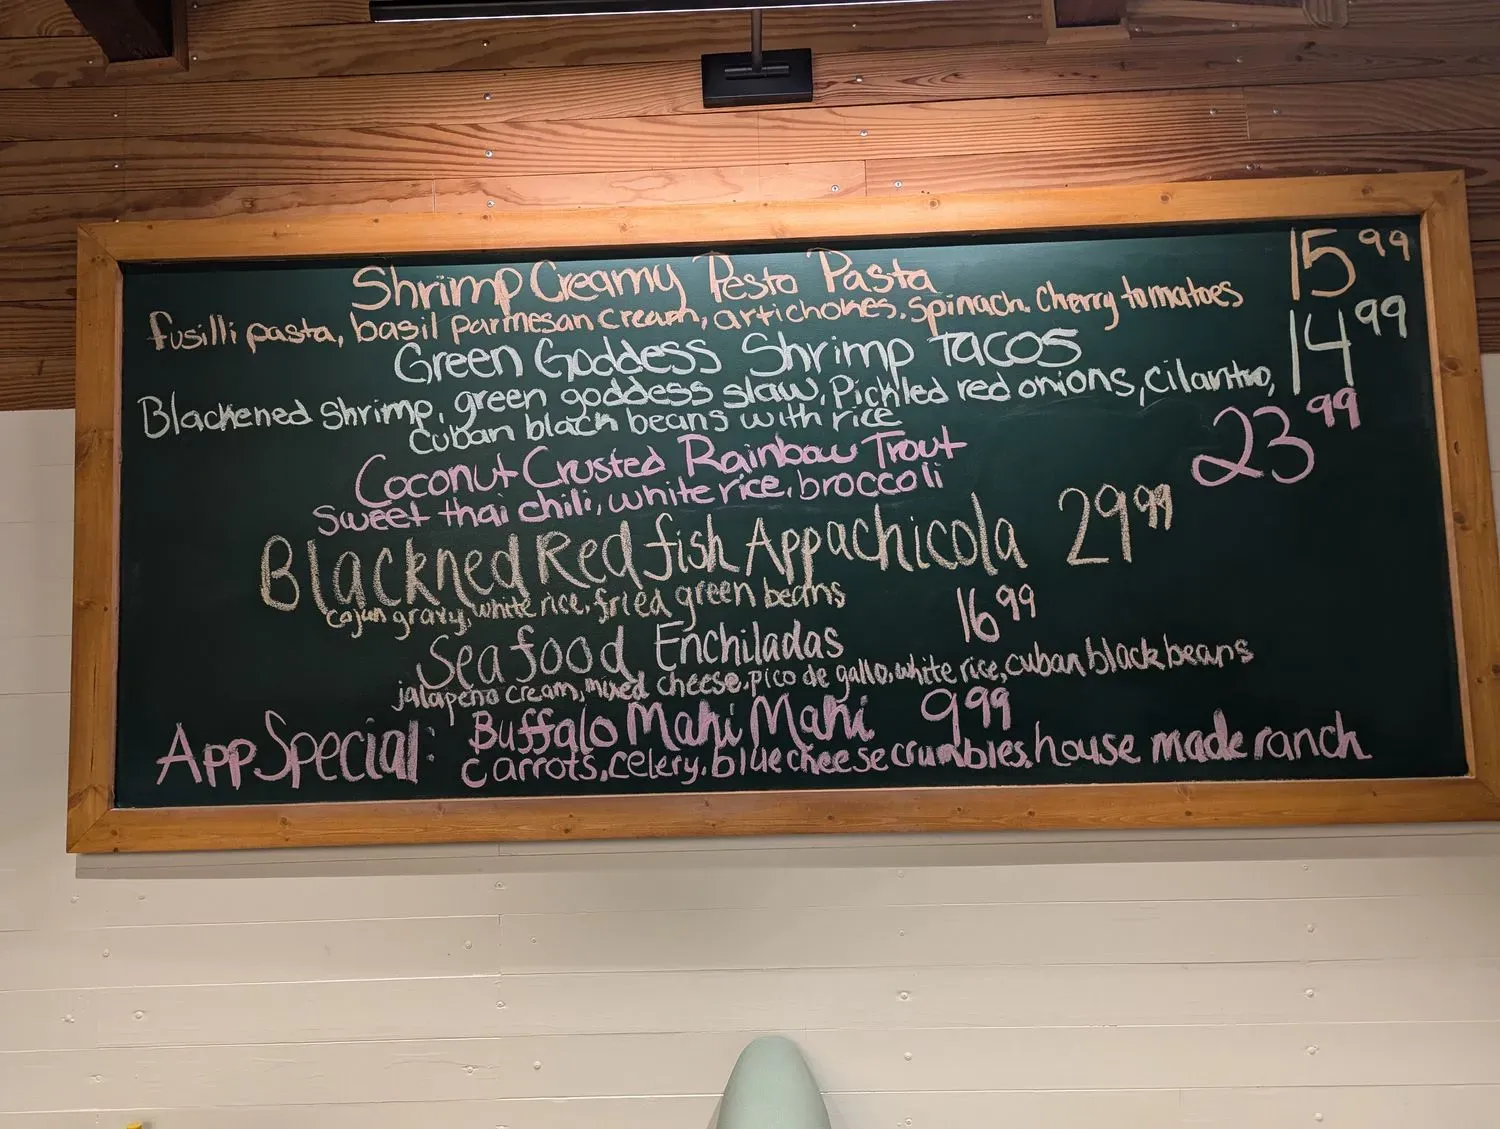 Shrimp Creamy Pesto Pasta 15 99
fusilli pasta, basil parmesan cream, artichokes, spinach, cherry tomatoes
Green Goddess Shrimp Tacos 14 99
Blackened shrimp, green goddess slaw, Pickled red onions, cilantro,
cuban black beans with rice
Coconut Crusted Rainbow Trout 23 99
Sweet thai chili, white rice, broccoli
Blackned Redfish Appachicola 29 99
cajun gravy, white rice, fried green beans
Seafood Enchiladas 16 99
jalapeño cream, mixed cheese, pico de gallo, white rice, cuban black beans
App Special: Buffalo Mahi Mahi 9 99
carrots, celery, blue cheese crumbles, house made ranch